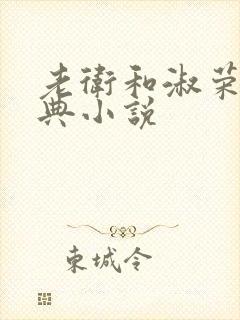 老衛和淑荣
典小說
東城令